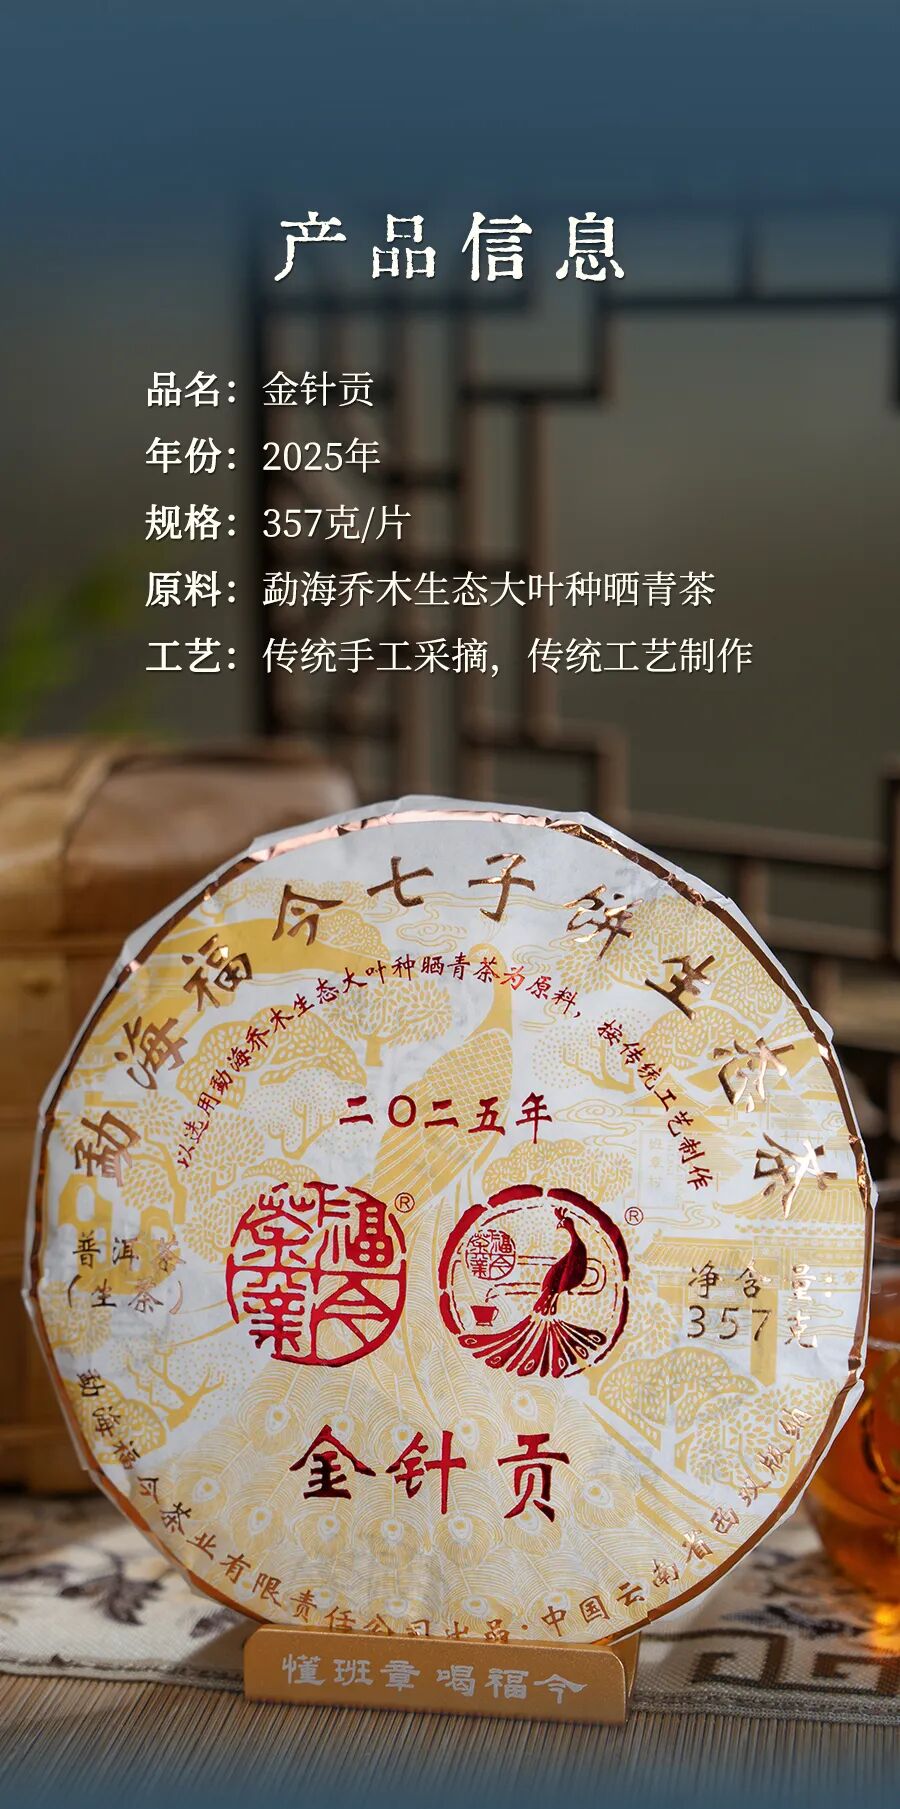 产品信息
品名：金针贡
年份：2025年
规格：357克/片
原料：勐海乔木生态大叶种晒青茶
工艺：传统手工采摘，传统工艺制作
勐海福今七子饼生态茶
以选用勐海乔木生态大叶种晒青茶为原料，按传统工艺制作
二〇二五年
福今茶业®
福今茶业®
普洱茶
（生茶）
净含量
357克
金针贡
勐海福今茶业有限责任公司出品·中国云南省西双版纳
懂班章 喝福今